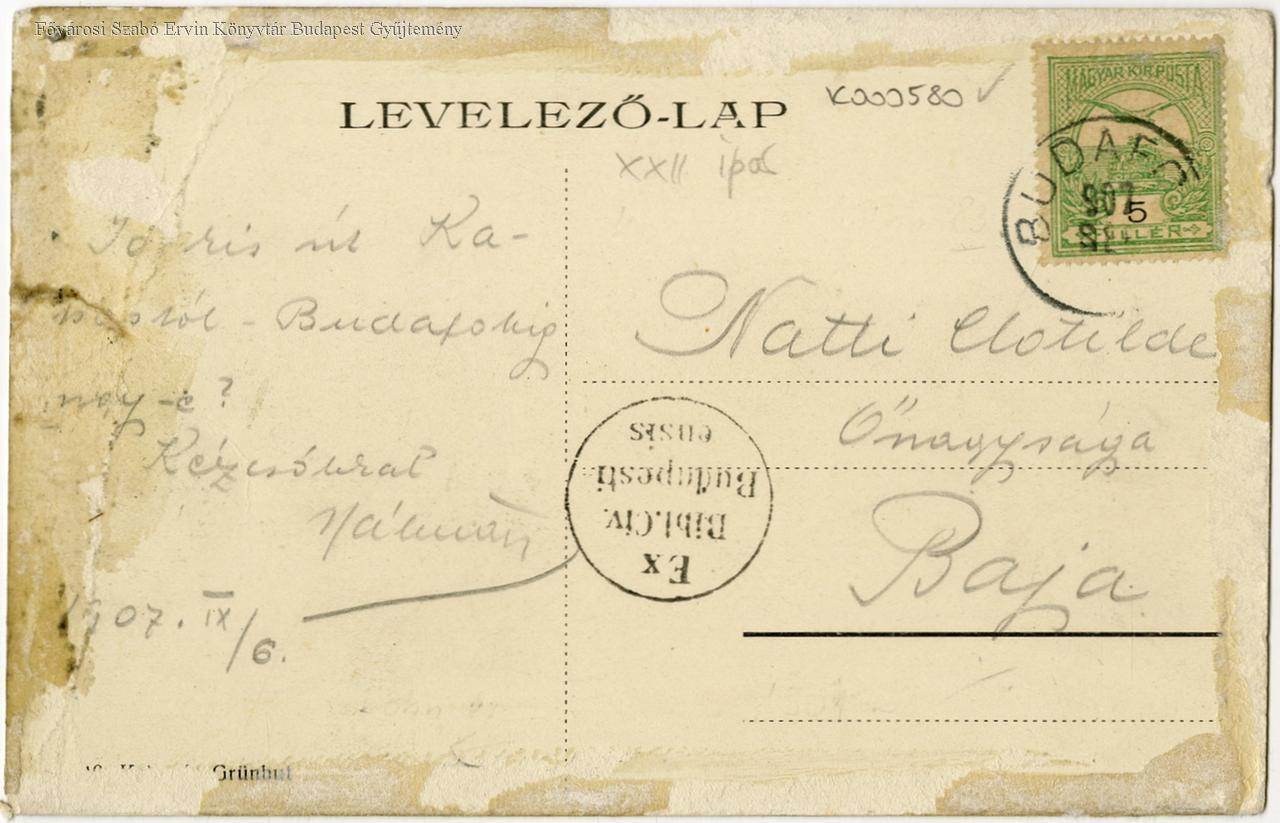 Fővárosi Szabó Ervin Könyvtár Budapest Gyűjtemény
LEVELEZŐ-LAP
K000580
XXII ipar
MAGYAR KIR. POSTA
BUDAFO
907
5
FILLÉR
út Ka-
tól - Budafokig
ugy-e?
Kézcsókkal
Kálmán
1907. IX/6.
Natti Clotilde
Őnagysága
Baja
Ex
Bibl. Civ.
Budapesti-
ensis
Grünhut